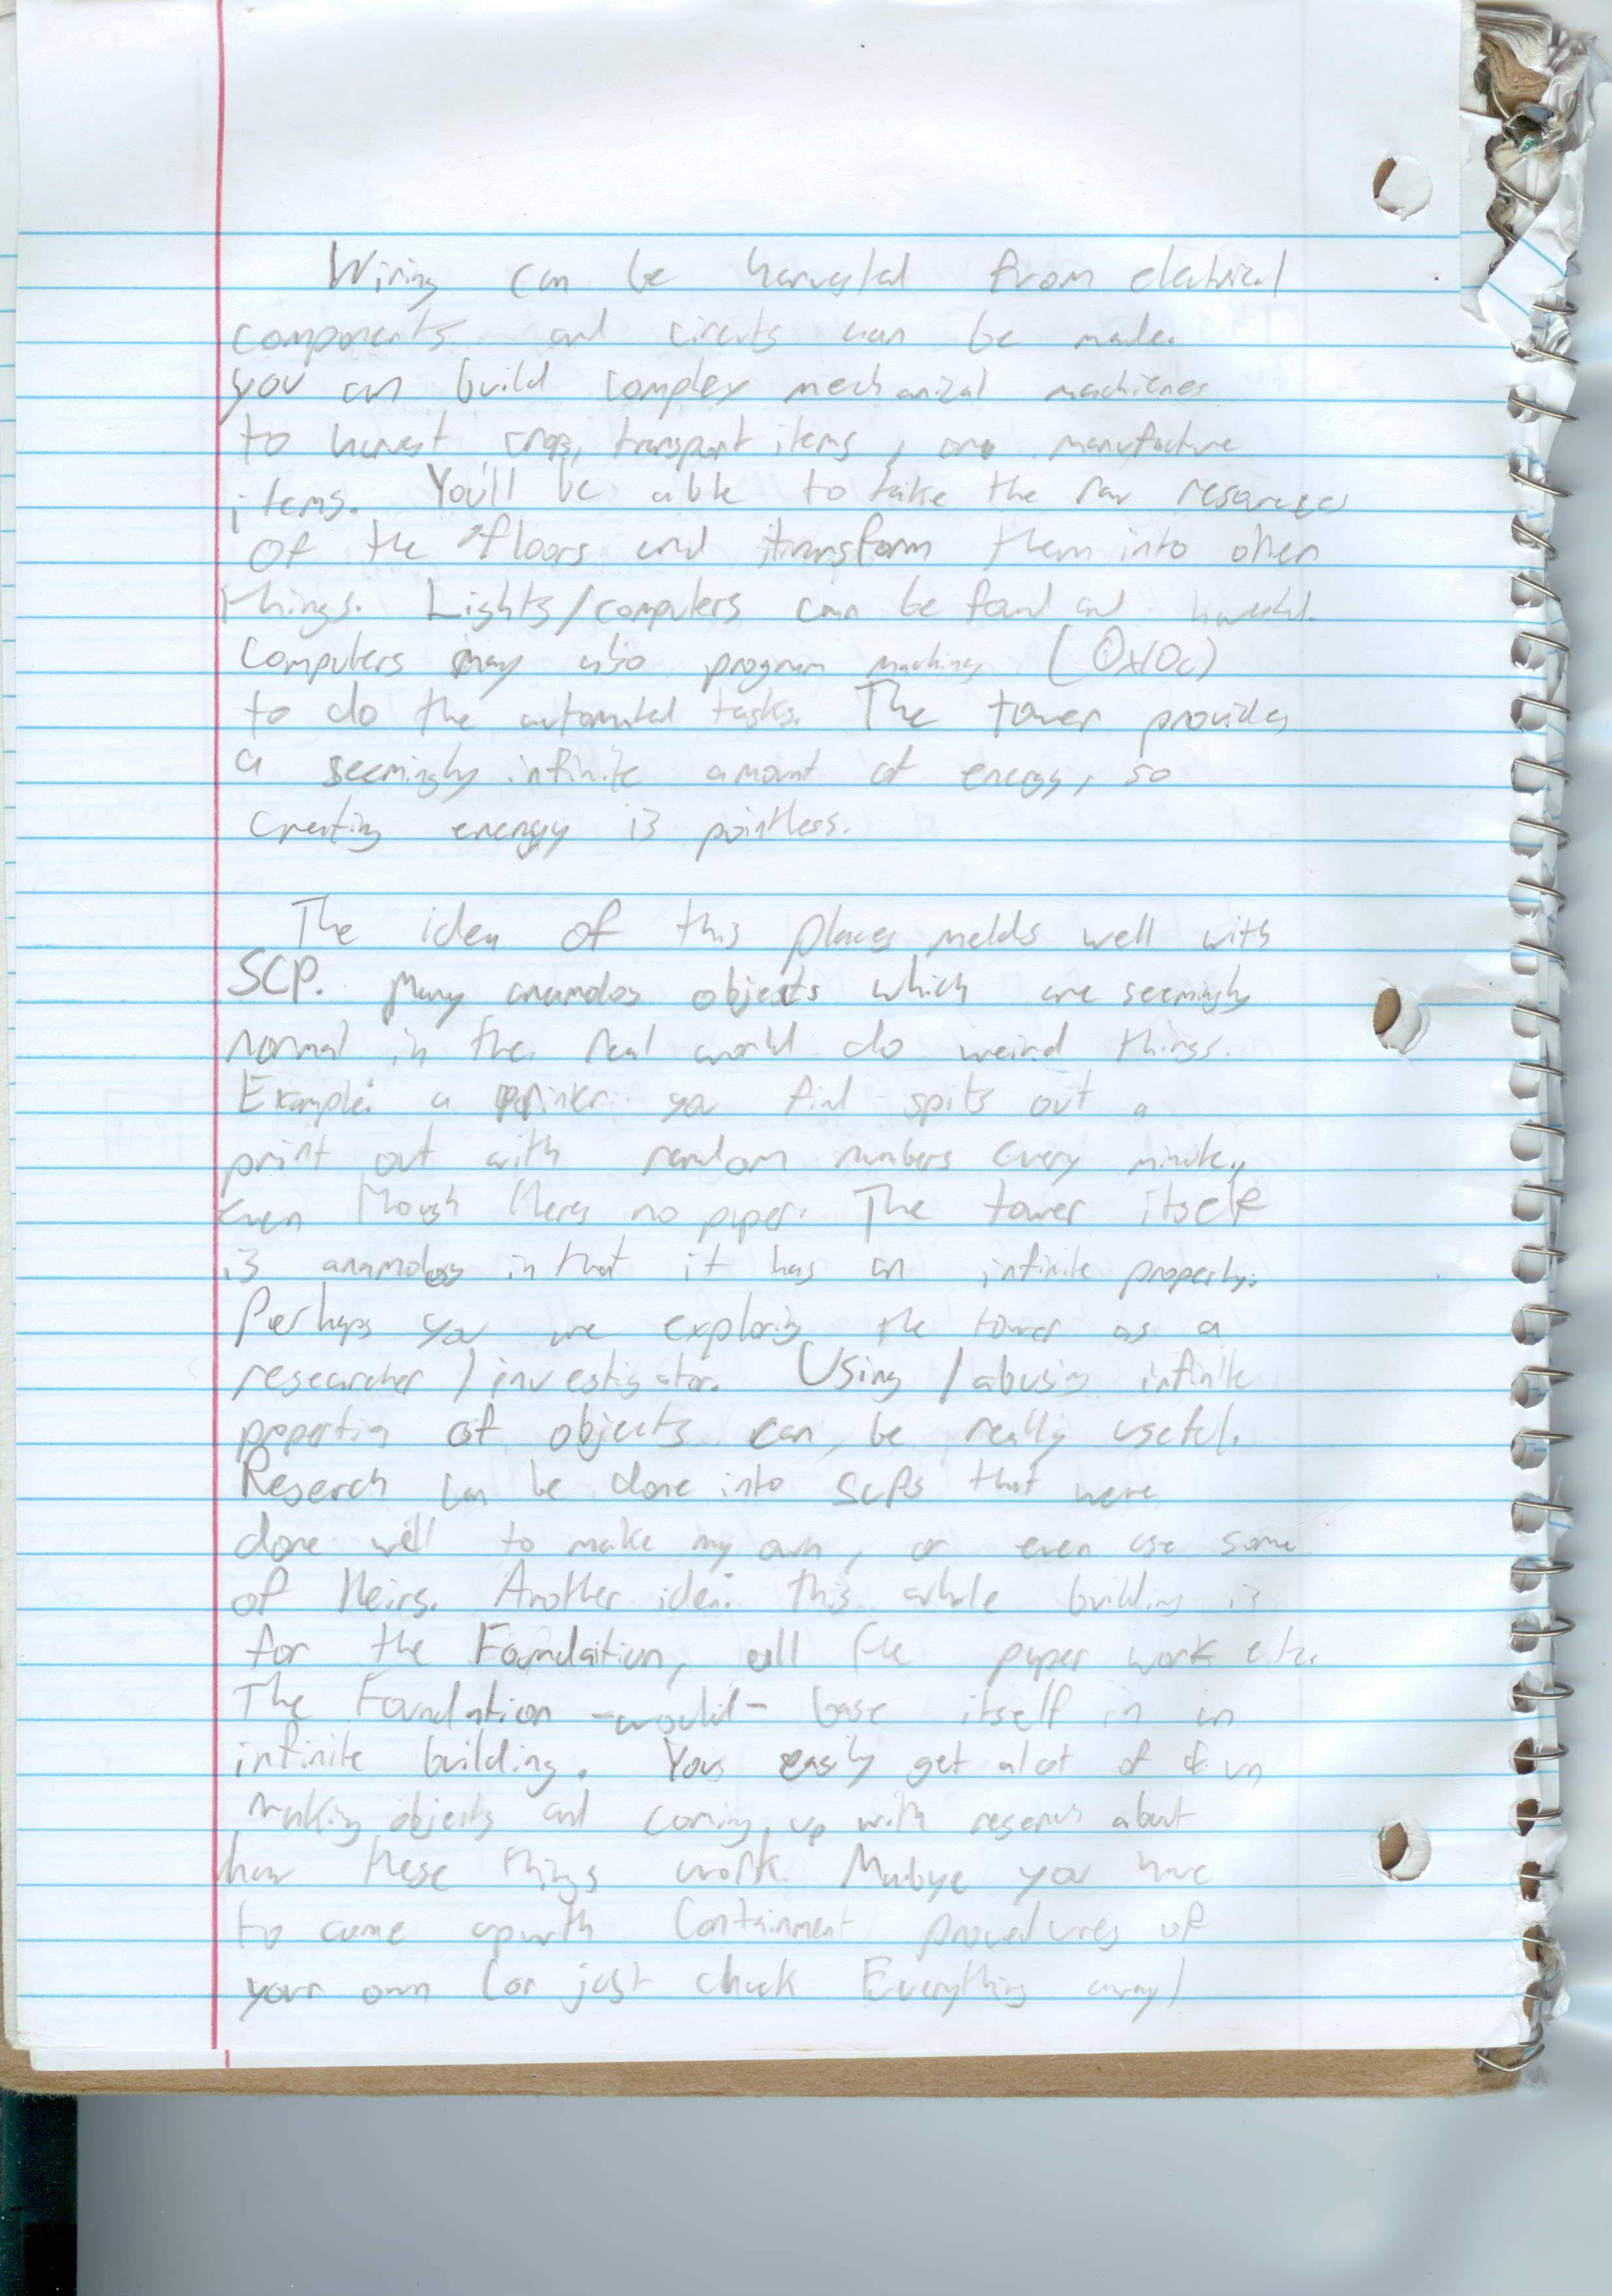 Wiring can be harvested from electrical
components and circuts can be made.
you can build complex mechanical machienes
to harvest crops, transport items, and manufacture
items. You'll be able to take the raw resources
of the floors and transform them into other
things. Lights/computers can be found and harvested.
Computers may also program machines (0x10c)
to do the automated tasks. The tower provides
a seemingly infinite amount of energy, so
creating energy is pointless.
The idea of this places melds well with
SCP. Many anamolos objects which are seemingly
normal in the real world do weird things.
Example: a printer you find spits out a
print out with random numbers every minute,
even though theres no paper. The tower itself
is anamolos in that it has an infinite property.
Perhaps you are exploring the tower as a
researcher / investigator. Using / abusing infinite
properties of objects can be really useful.
Reserch can be done into SCPs that were
done well to make my own, or even use some
of theirs. Another idea: this whole building is
for the Foundation, all the paper work etc.
The Foundation -would- base itself in an
infinite building. You easily get alot of fun
making objects and coming up with reasons about
how these things work. Maybye you have
to come up with Containment procedures of
your own (or just chuck Everything away)